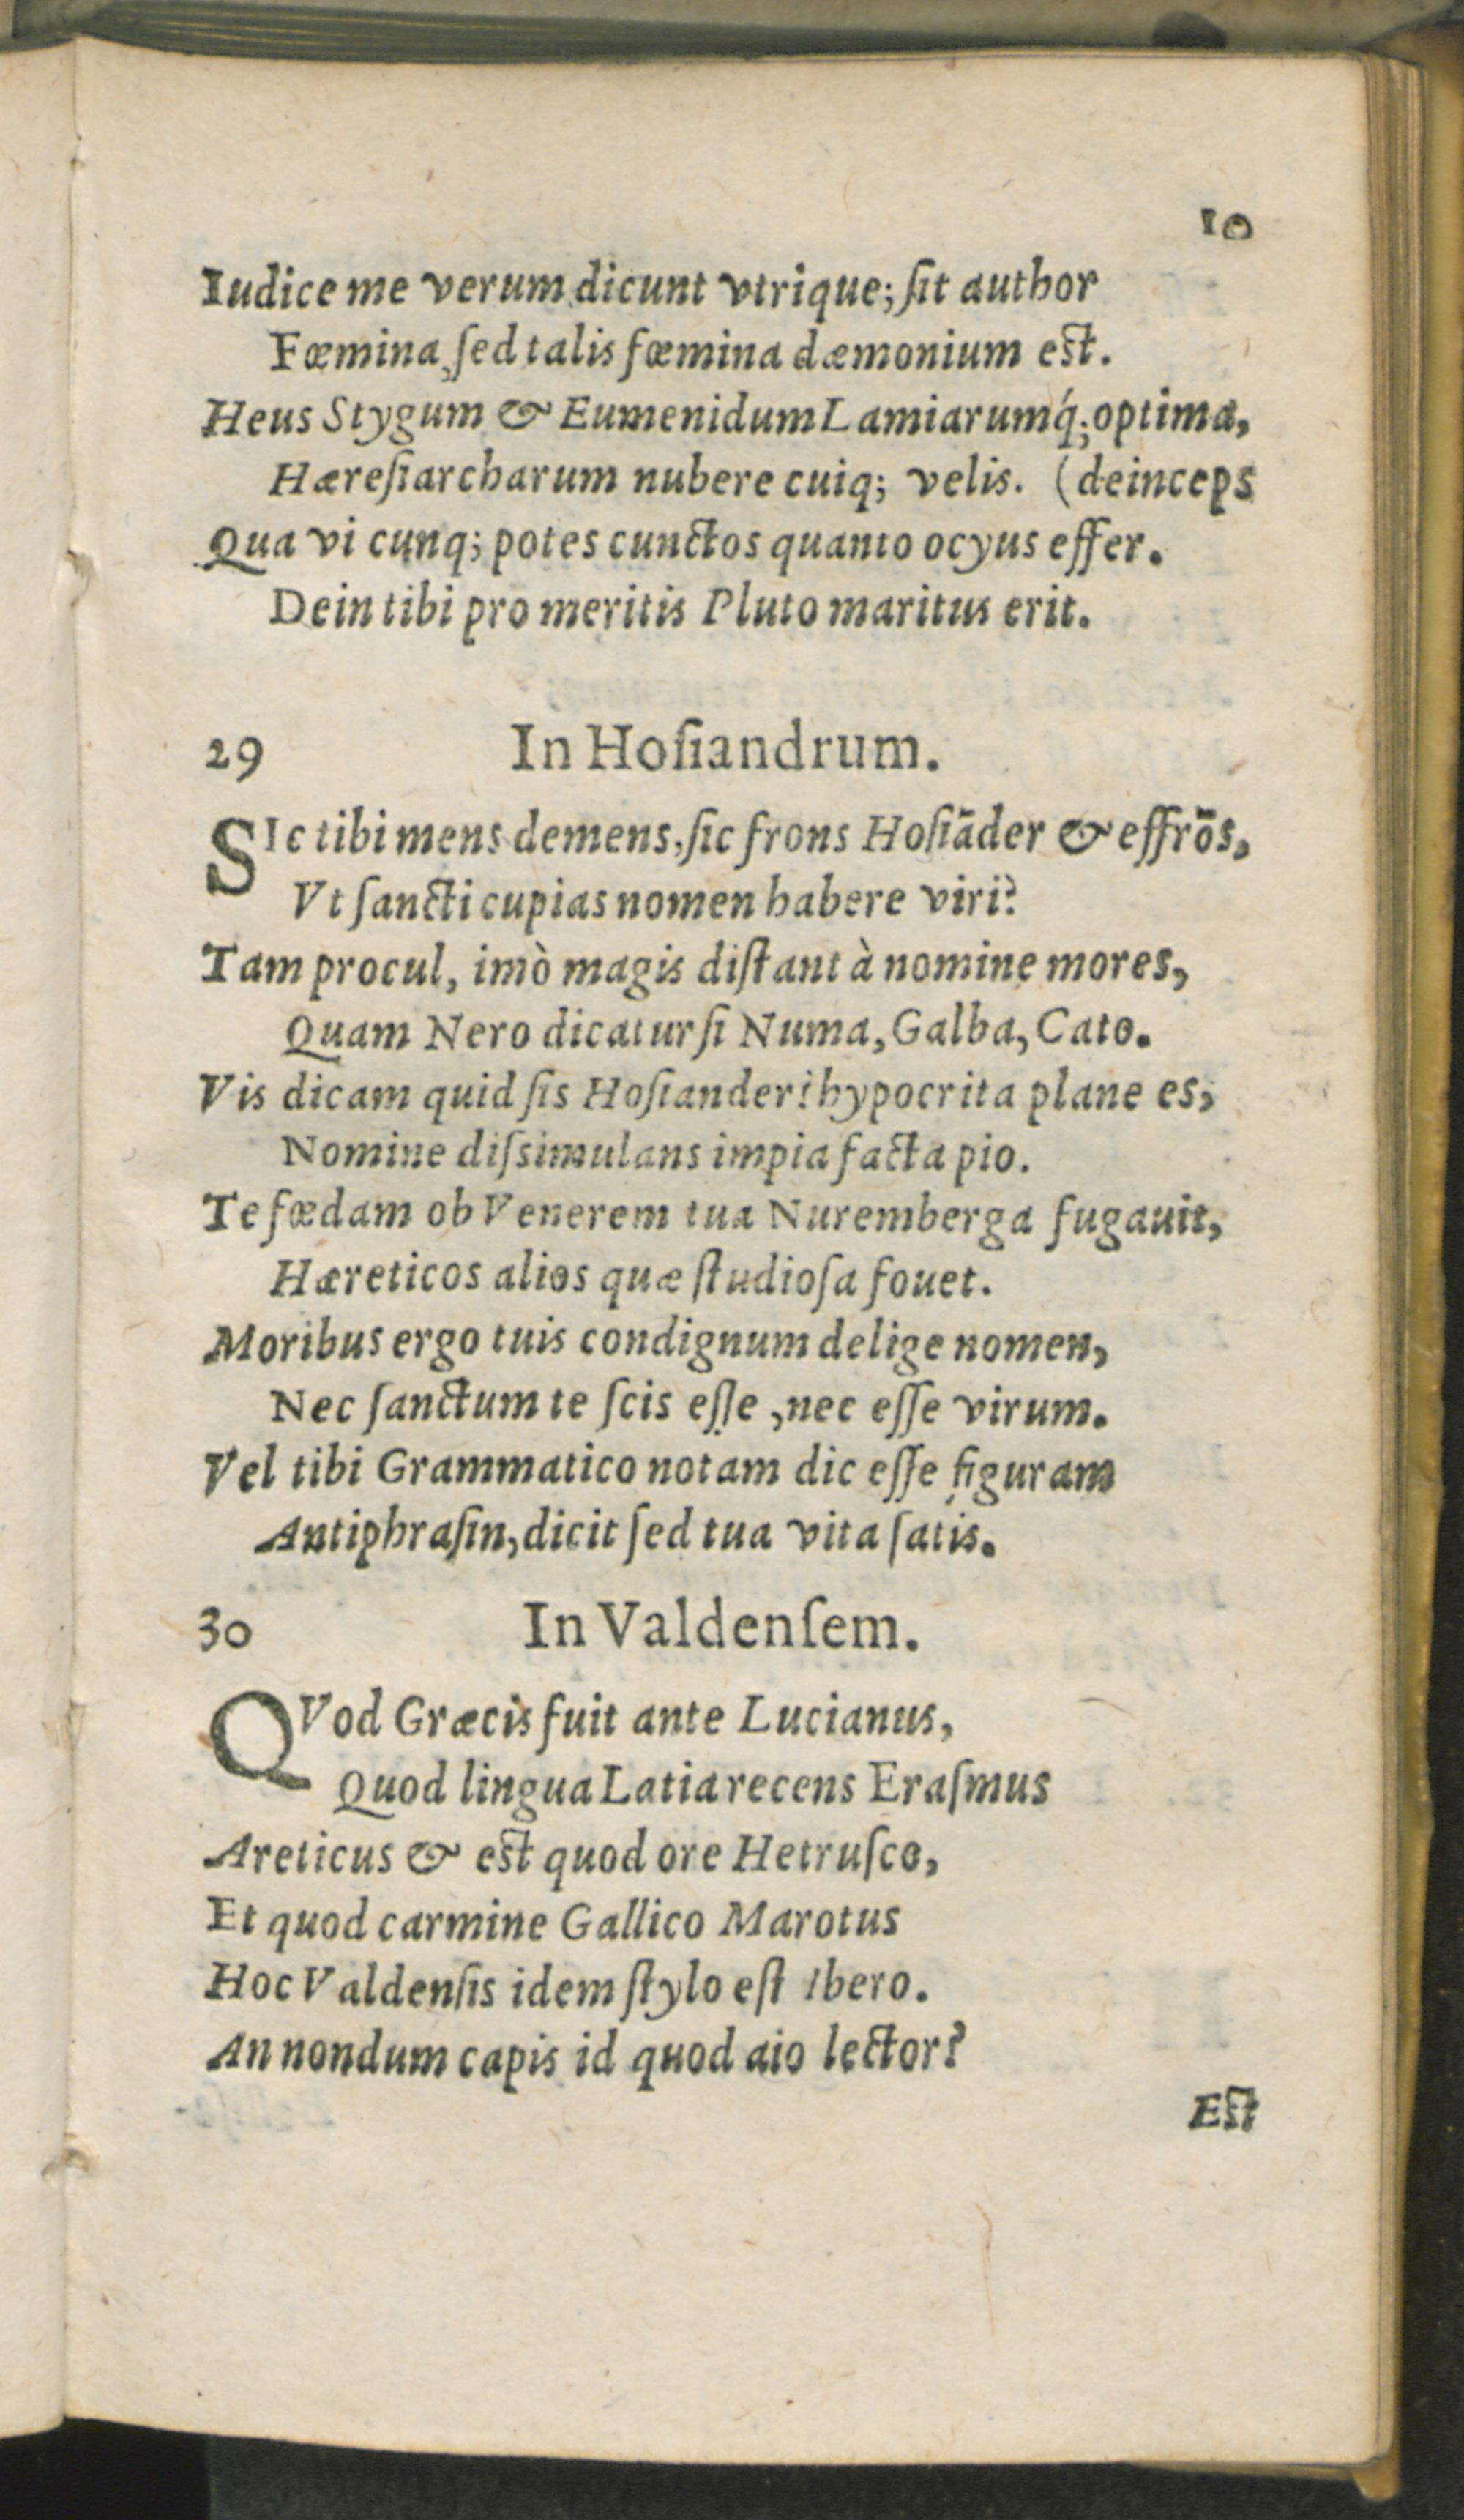 10
Iudice me verum dicunt vtrique; ſit author
Fœmina, ſed talis fœmina dæmonium est.
Heus Stygum & Eumenidum Lamiarumq́; optima,
Hæreſiarcharum nubere cuiq; velis. (deinceps
Qua vi cunq; potes cunctos quanto ocyus effer.
Dein tibi pro meritis Pluto maritus erit.
29 In Hoſiandrum.
SIc tibi mens demens, ſic frons Hoſiāder & effrōs,
Vt ſancti cupias nomen habere viri?
Tam procul, imò magis diſtant à nomine mores,
Quam Nero dicatur ſi Numa, Galba, Cato.
Vis dicam quid ſis Hoſiander? hypocrita plane es,
Nomine diſsimulans impia facta pio.
Te fœdam ob Venerem tua Nuremberga fugauit,
Hæreticos alios quæ ſtudioſa fouet.
Moribus ergo tuis condignum delige nomen,
Nec ſanctum te ſcis eſſe, nec eſſe virum.
Vel tibi Grammatico notam dic eſſe figuram
Antiphraſin, dicit ſed tua vita ſatis.
30 In Valdenſem.
QVod Græcis fuit ante Lucianus,
Quod lingua Latia recens Eraſmus
Areticus & est quod ore Hetruſco,
Et quod carmine Gallico Marotus
Hoc Valdenſis idem ſtylo eſt Ibero.
An nondum capis id quod aio lector?
Est